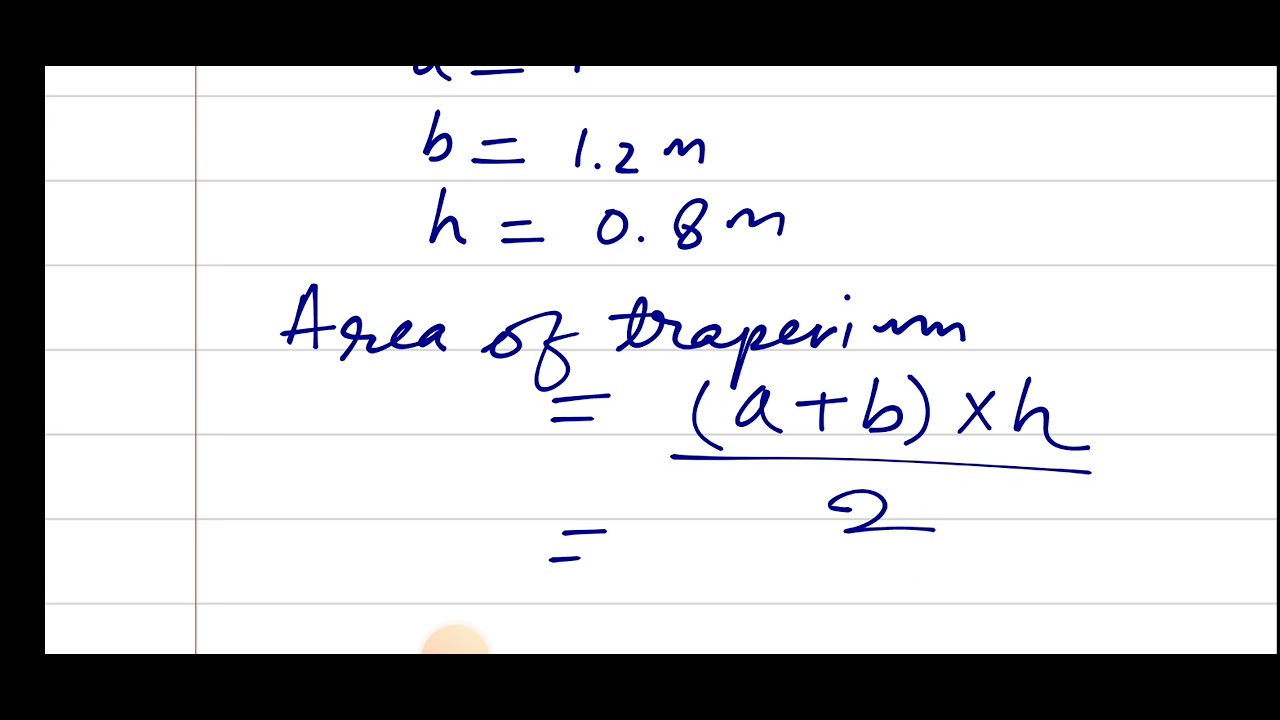 a =
b = 1.2 m
h = 0.8 m
Area of trapezium
= (a + b) × h
2
=